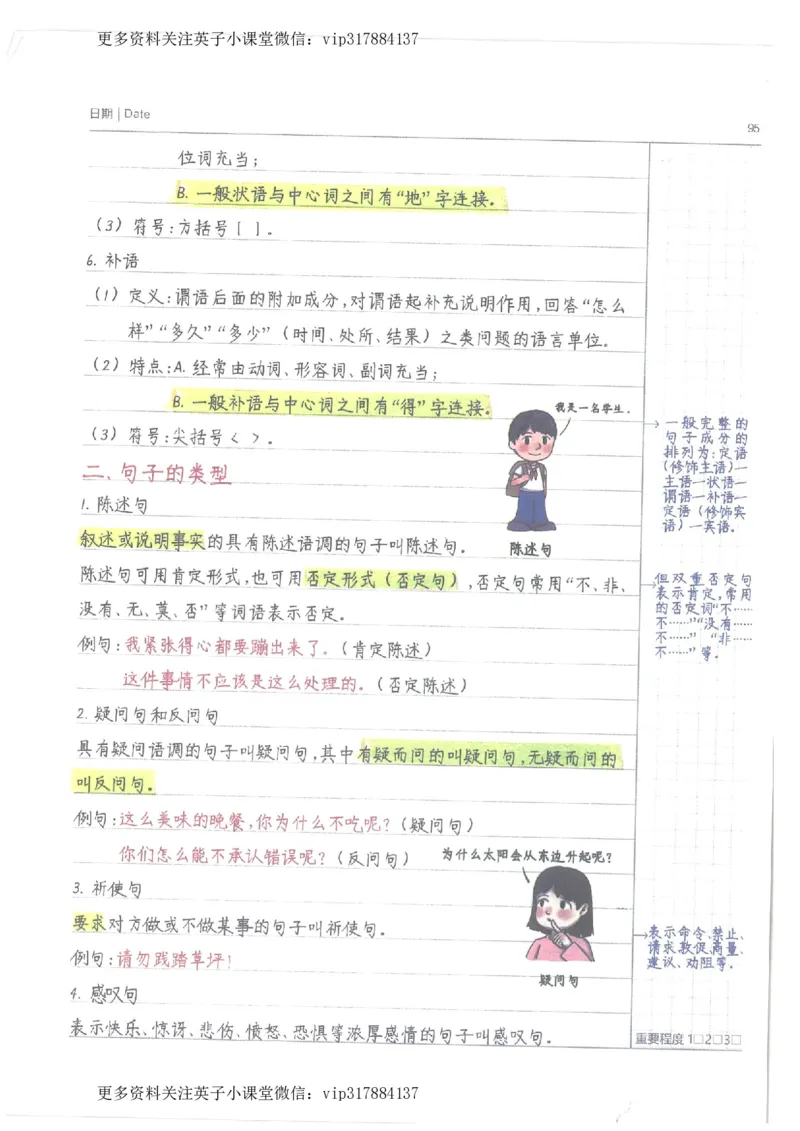 更多资料关注英子小课堂微信：vip317884137
日期 | Date
95
位词充当；
B. 一般状语与中心词之间有“地”字连接。
（3）符号：方括号[ ]。
6. 补语
（1）定义：谓语后面的附加成分，对谓语起补充说明作用，回答“怎么
样”“多久”“多少”（时间、处所、结果）之类问题的语言单位。
（2）特点：A. 经常由动词、形容词、副词充当；
B. 一般补语与中心词之间有“得”字连接。
（3）符号：尖括号< >。
我是一名学生.
陈述句
→一般完整的
句子成分的
排列为：定语
（修饰主语）—
主语—状语—
谓语—补语—
定语（修饰宾
语）—宾语。
二、句子的类型
1. 陈述句
叙述或说明事实的具有陈述语调的句子叫陈述句。
陈述句可用肯定形式，也可用否定形式（否定句），否定句常用“不、非、
没有、无、莫、否”等词语表示否定。
→但双重否定句
表示肯定，常用
的否定词“不……
不……”“没有……
不……”“非……
不……”等。
例句：我紧张得心都要蹦出来了。（肯定陈述）
这件事情不应该是这么处理的。（否定陈述）
2. 疑问句和反问句
具有疑问语调的句子叫疑问句，其中有疑而问的叫疑问句，无疑而问的
叫反问句。
例句：这么美味的晚餐，你为什么不吃呢？（疑问句）
你们怎么能不承认错误呢？（反问句）
为什么太阳会从东边升起呢？
疑问句
3. 祈使句
要求对方做或不做某事的句子叫祈使句。
例句：请勿践踏草坪！
→表示命令、禁止、
请求、敦促、商量、
建议、劝阻等。
4. 感叹句
表示快乐、惊讶、悲伤、愤怒、恐惧等浓厚感情的句子叫感叹句。
重要程度 1□2□3□
更多资料关注英子小课堂微信：vip317884137